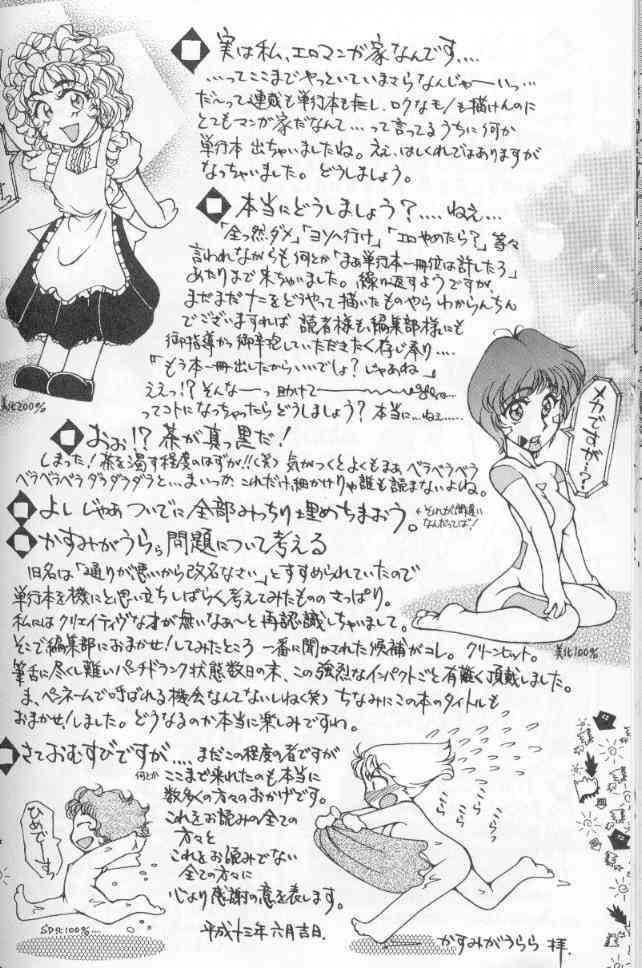 実は私、エロマンガ家なんです....
...ってここまでやっといていまさらなんじゃーいっ...
だ〜って連載も単行本も無し、ロクなモノも描けんのに
とてもマンガ家だなんて...って言ってるうちに何か
単行本 出ちゃいましたね。ええ、はしくれではありますが
なっちゃいました。どうしましょう。
本当にどうしましょう?....ねえ...
「全っ然ダメ」「ヨソへ行け」「エロやめたら?」等々
言われながらも何とか「まあ単行本一冊位は許したろ」
あたりまで来ちゃいました。繰り返すようですが、
まだまだナニをどうやって描いたものやらわからんちん
でございますれば 読者様も編集部様にも
御指導かつ御辛抱していただきたく存じ奉り....
「もう本一冊出したからいいでしょ?じゃあね」
ええっ!?そんなーっ助けて
ってコトになっちゃったらどうしましょう?本当に...ねぇ....
美化200%
メカですが...?
おお!?茶が真っ黒だ!
しまった!茶を濁す程度のはずが!!(笑) 気がつくとよくもまあベラベラベラ
ベラベラベラダラダラダラと...まいっか、これだけ細かけりゃ誰も読まないよね。
よし じゃあついでに全部みっちり埋めちまおう。
←それが間違いなんだってば!
かすみがうらら問題について考える
旧名は「通りが悪いから改名なさい」とすすめられていたので
単行本を機にと思い立ちしばらく考えてみたもののさっぱり。
私にはクリエイティヴな才が無いなあ〜と再認識しちゃいまして。
そこで編集部におまかせ!してみたところ 一番に聞かされた候補がコレ。クリーンヒット。
美化100%
筆舌に尽くし難いパンチドランク状態数日の末、この強烈なインパクトごと有難く頂戴しました。
ま、ペンネームで呼ばれる機会なんてないしね(笑) ちなみにこの本のタイトルも
おまかせ!しました。どうなるのか本当に楽しみですわ。
さておむすびですが....まだこの程度の者ですが
何とか
ここまで来れたのも本当に
数多くの方々のおかげです。
これをお読みの全ての
方々と
これをお読みでない
全ての方々に
心より感謝の意を表します。
平成十三年六月吉日
ひめでーす
SD化100%...
うらら
うらら
うらら
かすみがうらら 拝